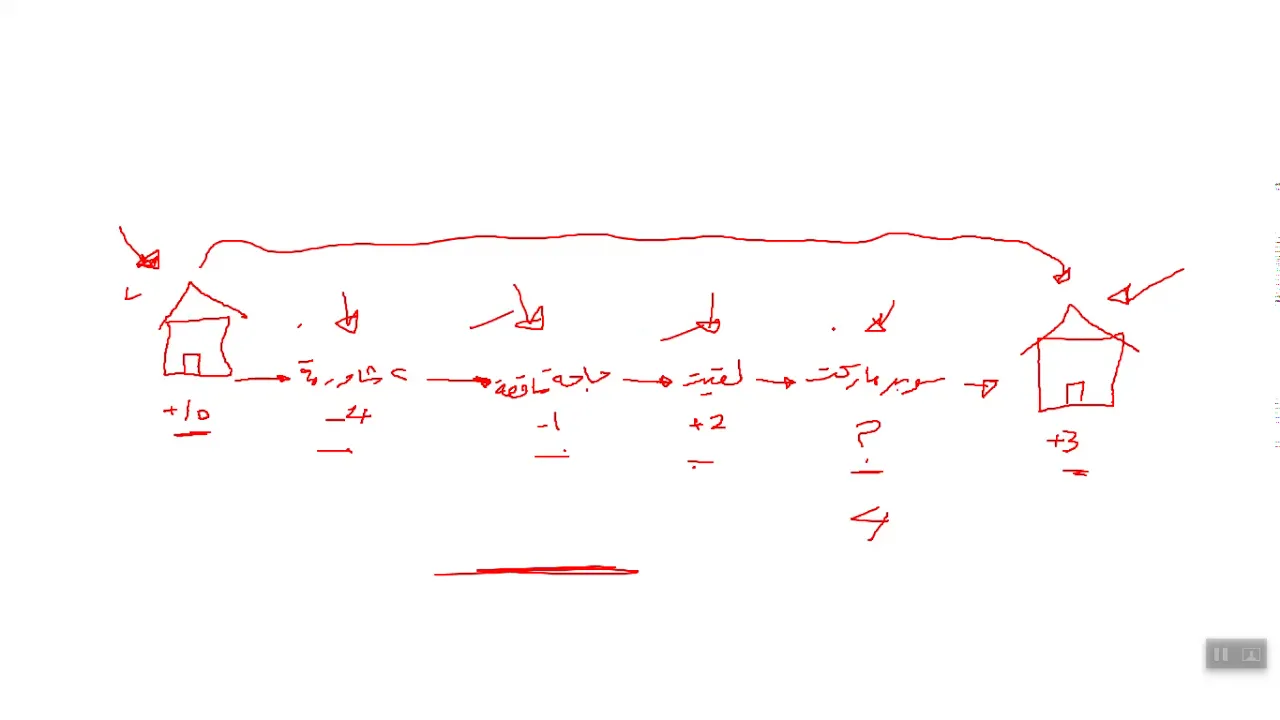 شاورمة حاجة ساقعة لقيت سوبر ماركت
+10 -4 -1 +2 ? +3
4